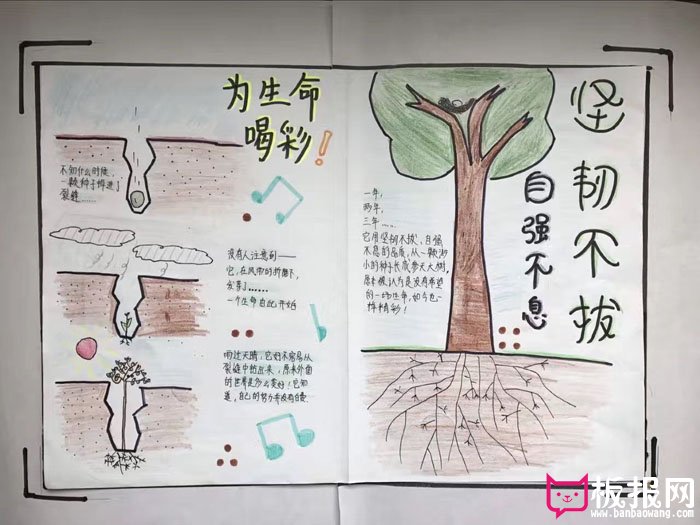 为生命
喝彩！
不知什么时候，
一颗种子掉进了
裂缝……
没有人注意到——
它，在风雨的折磨下，
发芽了……
一个生命自此开始
雨过天晴，它好不容易从
裂缝中钻出来，原来外面
的世界是多么美好！它知
道，自己的努力并没有白费
坚韧不拔
自强不息
一年，
两年，
三年……
它用坚韧不拔，自强
不息的品质，从一颗渺
小的种子长成参天大树，
原来被认为是没有希望
的一场生命，如今也一
样精彩！
板报网
www.banbaowang.com